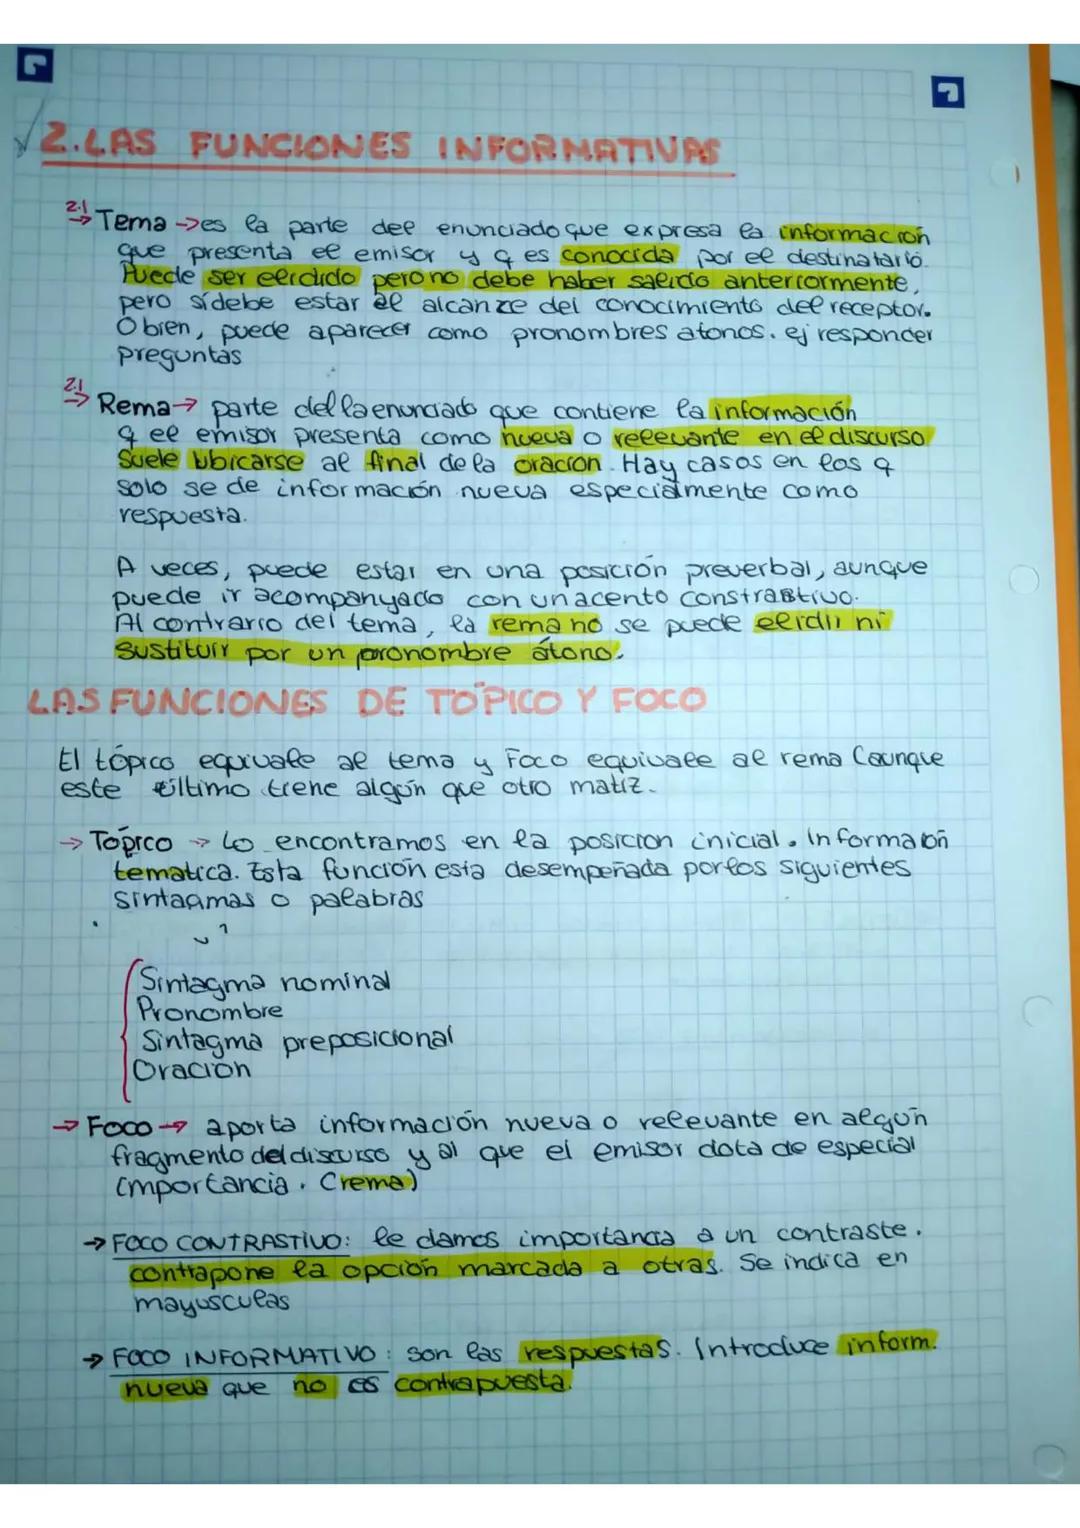 2. LAS FUNCIONES INFORMATIVAS
2.1
→ Tema → es la parte del enunciado que expresa la información
que presenta el emisor y q es conocida por el destinatario.
Puede ser elidido pero no debe haber salido anteriormente,
pero sí debe estar al alcance del conocimiento del receptor.
O bien, puede aparecer como pronombres atonos. ej responder
preguntas
2.1
→ Rema → parte del la enunciado que contiene la información
q el emisor presenta como nueva o relevante en el discurso
Suele ubicarse al final de la oración. Hay casos en los q
solo se de información nueva especialmente como
respuesta.
A veces, puede estar en una posición preverbal, aunque
puede ir acompanyado con un acento constrastivo.
Al contrario del tema, la rema no se puede elidir ni
sustituir por un pronombre átono.
LAS FUNCIONES DE TÓPICO Y FOCO
El tópico equivale al tema y Foco equivale al rema (aunque
este último tiene algún que otro matiz.
→ Tópico → Lo encontramos en la posicion inicial. Informaión
tematica. Esta función esta desempeñada por los siguientes
sintagmas o palabras
Sintagma nominal
Pronombre
Sintagma preposicional
Oracion
→ Foco → aporta información nueva o relevante en algún
fragmento del discurso y al que el emisor dota de especial
importancia. (rema)
→ FOCO CONTRASTIVO: le damos importancia a un contraste.
contrapone la opción marcada a otras. Se indica en
mayusculas
→ FOCO INFORMATIVO: son las respuestas. Introduce inform.
nueva que no es contrapuesta.